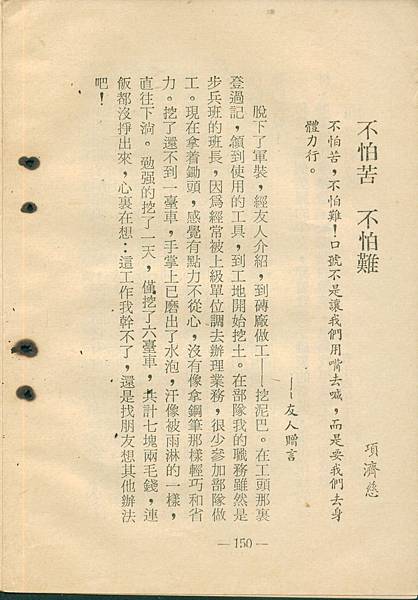 不怕苦　不怕難
項濟慈
不怕苦，不怕難！口號不是讓我們用嘴去喊，而是要我們去身
體力行。
——友人贈言
脫下了軍裝，經友人介紹，到磚廠做工——挖泥巴。在工頭那裏
登過記，領到使用的工具，到工地開始挖土。在部隊我的職務雖然是
步兵班的班長，因爲經常被上級單位調去辦理業務，很少參加部隊做
工。現在拿着鋤頭，感覺有點力不從心，沒有像拿鋼筆那樣輕巧和省
力。挖了還不到一臺車，手掌上已磨出了水泡，汗像被雨淋的一樣，
直往下淌。勉强的挖了一天，僅挖了六臺車，共計七塊兩毛錢，連
飯都沒掙出來，心裏在想：這工作我幹不了，還是找朋友想其他辦法
吧！
—150—